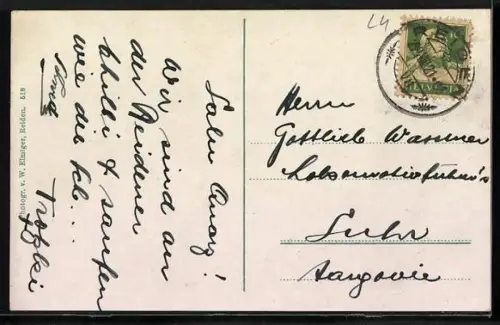 Salu Quorg!
Wir sind an
der Reidener
Chilbi & saufen
wie die Lch...
Trotzki
Photogr. v. W. Elsiger, Reiden. 519
L4
HELVETIA
Herrn
Gottlieb Wassmer
Lokomotivführer's
Suhr
Aargovie